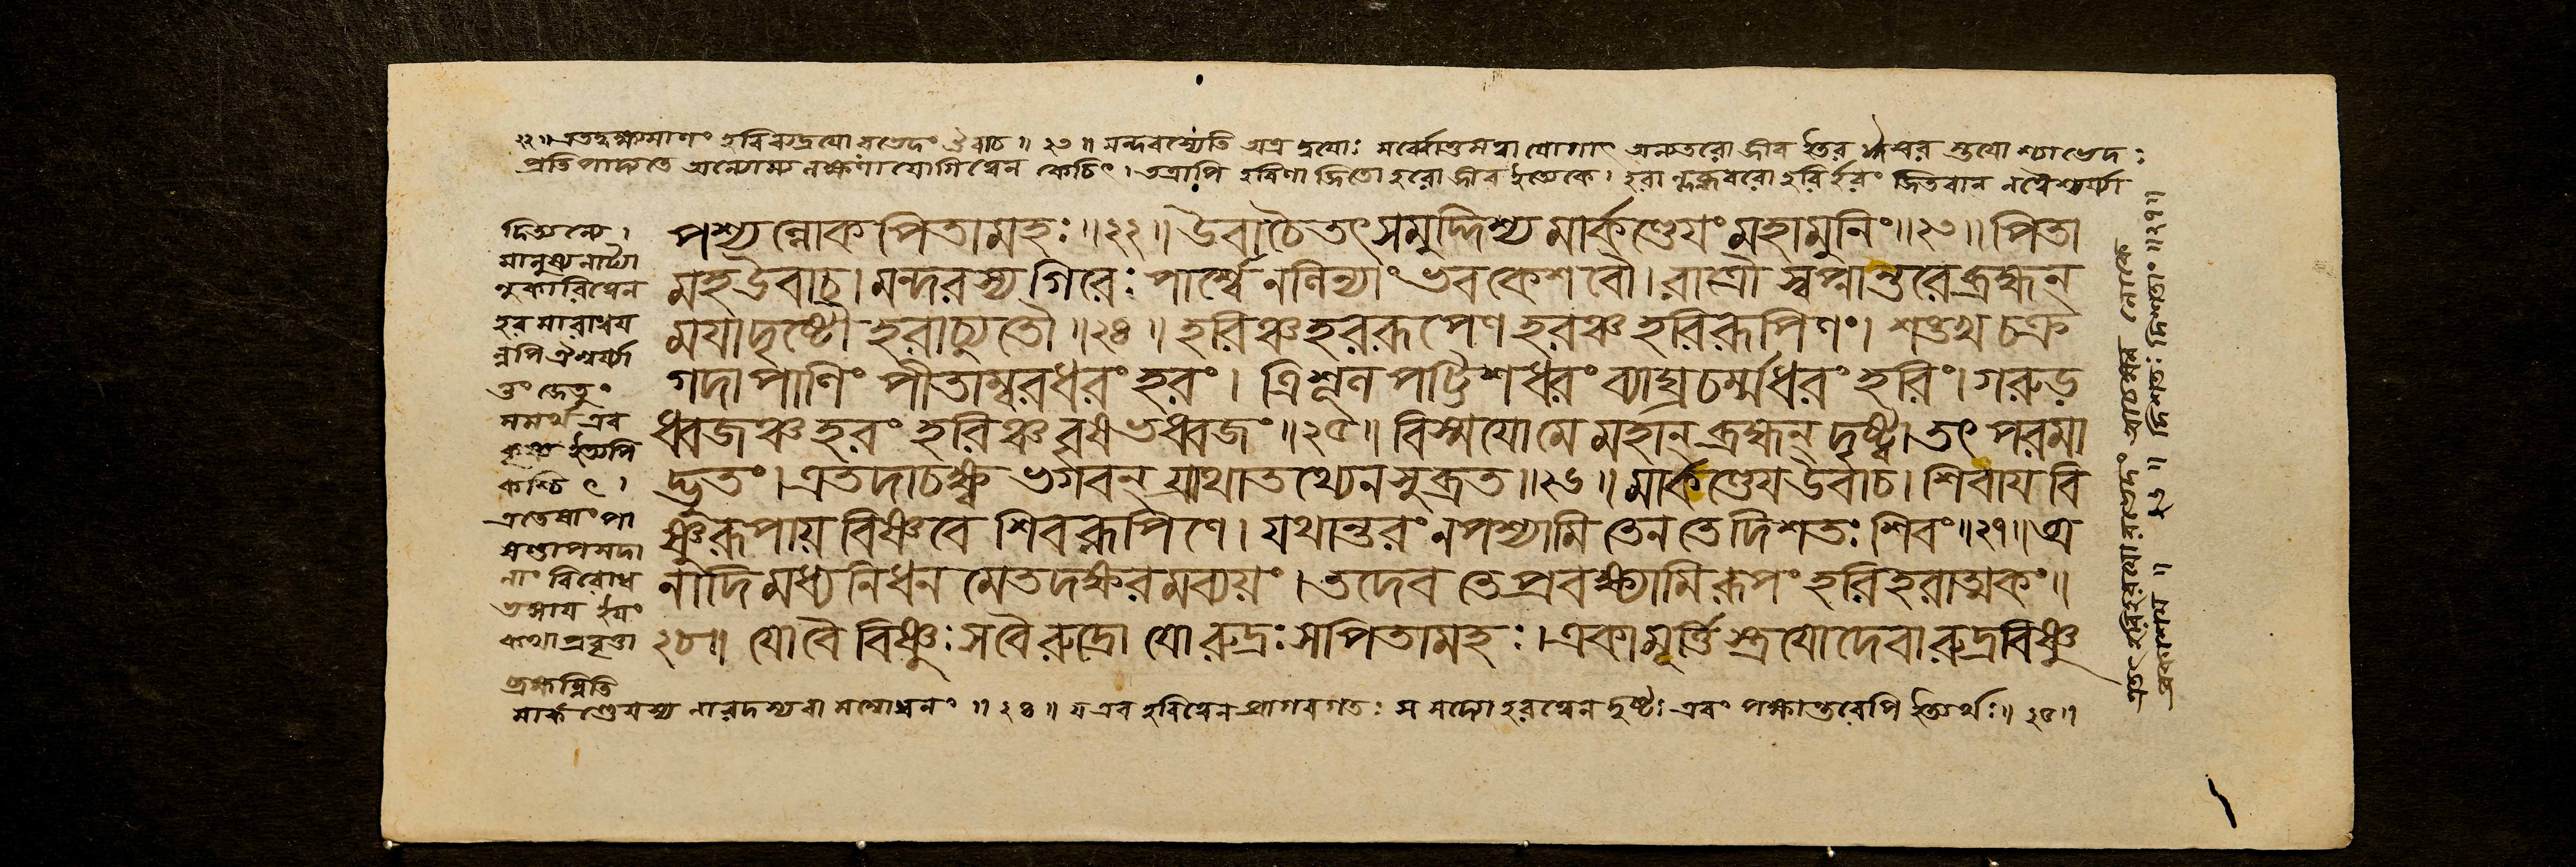 ২২॥ এতদ্বক্ষ্যমাণং হরিরুদ্রয়ো রভেদং উবাচ ॥ ২৩ ॥ মন্দরস্যেতি অত্র দ্বয়োঃ
প্রতিপাদ্যতে অন্যোন্য যোগিত্বেন কেচিৎ। তত্রাপি হরিণা জিতো হরো জীব ইত্যেকে। হরিং জিতবান
পশ্যন্লোকপিতামহঃ॥২২॥ উবাচৈতৎ সমুদ্দিশ্য মার্কণ্ডেয়ং মহামুনিং॥২৩॥ পিতা
মহউবাচ। মন্দরস্য গিরেঃ পার্শ্বে নলিন্যাং ভবকেশবৌ। রাত্রৌ স্বপ্নান্তরে ব্রহ্মন্
ময়াদৃষ্টৌ হরাচ্যুতৌ॥২৪॥ হরিঞ্চ হররূপেণ হরঞ্চ হরিরূপিণং। শঙ্খ চক্র
গদাপাণিং পীতাম্বরধরং হরং। ত্রিশূল পট্টিশধরং ব্যাঘ্রচর্ম্মধরং হরিং। গরুড়
ধ্বজঞ্চ হরং হরিঞ্চ বৃষভধ্বজং॥২৫॥ বিস্ময়োমে মহান্ ব্রহ্মন্ দৃষ্ট্বা তৎ পরমা
দ্ভুতং। এতদাচক্ষ্ব ভগবন্ যাথাতথ্যেন সুব্রত॥২৬॥ মার্কণ্ডেয়উবাচ। শিবায় বি
ষ্ণুরূপায় বিষ্ণবে শিবরূপিণে। যথান্তরং নপশ্যামি তেন তে দিশতঃ শিবং॥২৭॥ অ
নাদিমধ্যনিধন মেতদক্ষরমব্যয়ং। তদেব তে প্রবক্ষ্যামি রূপং হরিহরাত্মকং॥
২৮॥ যোবৈ বিষ্ণুঃ সবৈ রুদ্রো যো রুদ্রঃ সপিতামহঃ। একামূর্ত্তি স্ত্রয়োদেবা রুদ্রবিষ্ণু
মানুষ্যনাট্যা
নুকারিত্বেন
হর মারাধয়
ন্নপি ঐশ্বর্য্যা
ত্তং জেতুং
সমর্থ এব
কৃষ্ণ ইত্যপি
কশ্চিৎ।
এতেষাং পা
নাং বিরোধ
ইয়ং
কথা প্রবৃত্তা
ব্রহ্মন্নিতি
মার্কণ্ডেয়স্য নারদস্য বা সম্বোধনং ॥ ২৪ ॥ য এব হরিত্বেন প্রাগবগতঃ স হরত্বেন দৃষ্টঃ এবং পক্ষান্তরেপি ইত্যর্থঃ॥ ২৫॥